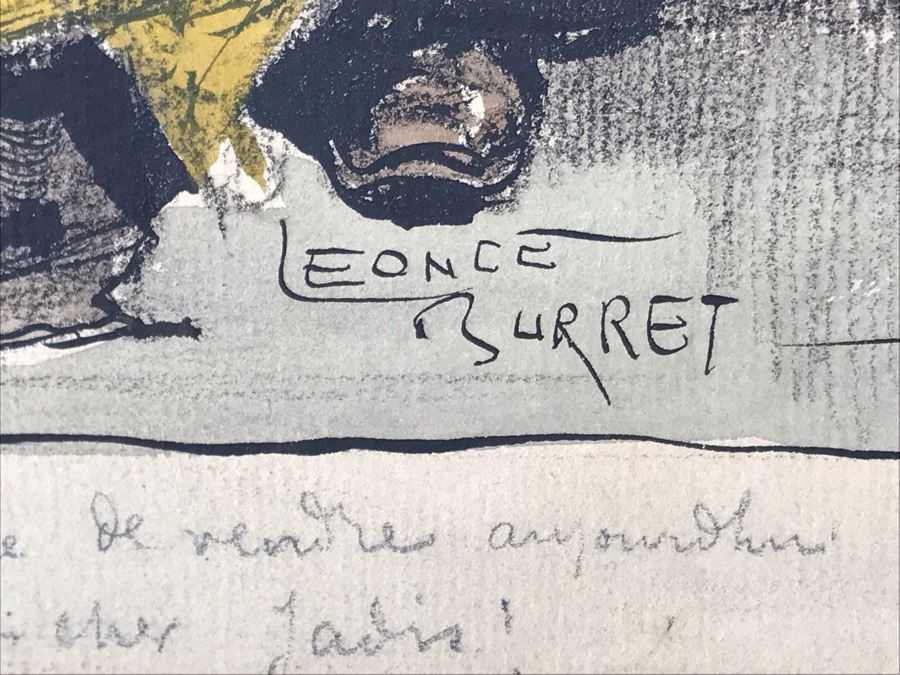 LEONCE
BURRET
e de vendres aujourdhui
cher Jadis!